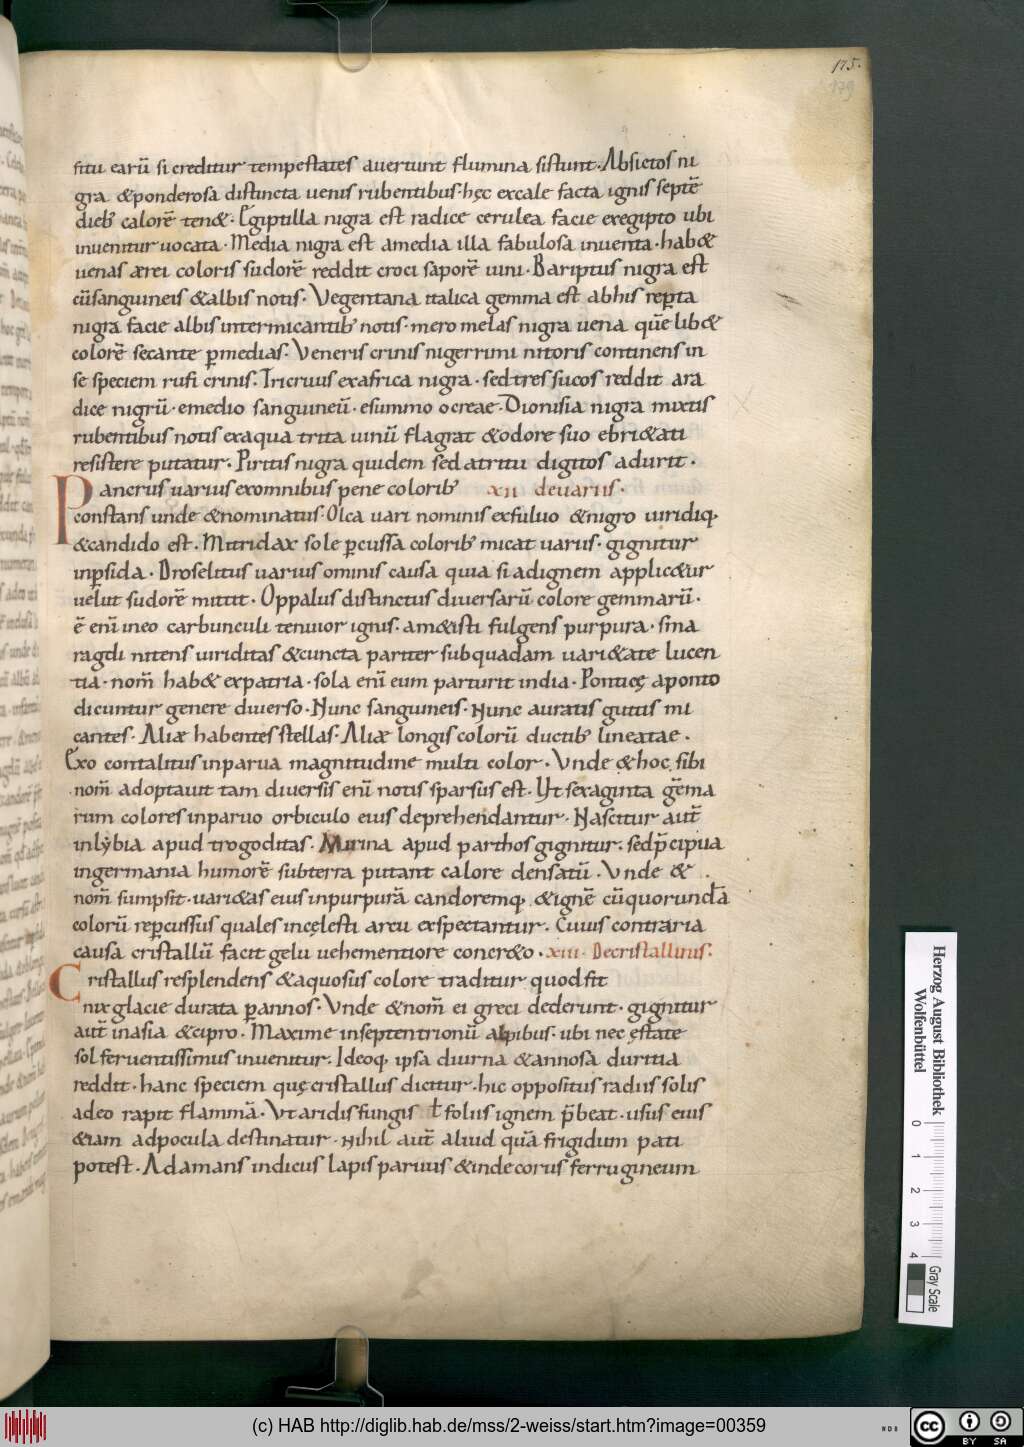 175.
179
situ earū si creditur tempestates auertunt flumina sistunt. Absictos ni
gra &ponderosa distincta uenis rubentibus. hęc excale facta ignis septē
dieb; calorē ten&. Egiptilla nigra est radice cerulea facie exegipto ubi
inuenitur uocata. Media nigra est amedia illa fabulosa inuenta. hab&
uenas ærei coloris sudorē reddit croci saporē uini. Bariptus nigra est
cūsanguineis &albis notis. Vegentana italica gemma est abhis rep̄ta
nigra facie albis intermicantib; notis. mero melas nigra uena quē lib&
colorē secante ꝑmedias. Veneris crinis nigerrimi nitoris continens in
se speciem rufi crinis. Tricruus exafrica nigra. sed tres sucos reddit ara
dice nigrū. emedio sanguineū. esummo ocreae. Dionisia nigra mixtis
rubentibus notis exaqua trita uinū flagrat &odore suo ebri&ati
resistere putatur. Piritis nigra quidem sed atritu digitos adurit.
Pancrus uarius exomnibus pene colorib; xii deuariis.
constans unde &nominatus. Olca uari nominis exfuluo &nigro uiridiq;
&candido est. Mitridax sole ꝑcussa colorib; micat uarus. gignitur
inꝑsida. Droselitus uarius ominis causa quia si adignem applic&ur
uelut sudorē mittit. Oppalus distinctus diuersarū colore gemmarū.
ē enī ineo carbunculi tenuior ignis. am&isti fulgens purpura. sma
ragdi nitens uiriditas &cuncta pariter sub quadam uari&ate lucen
tia. nom̄ hab& expatria. sola enī eum parturit india. Ponticę aponto
dicuntur genere diuerso. Nunc sanguineis. Nunc auratis guttis mi
cantes. Aliæ habentes stellas. Aliæ longis colorū ductib; lineatae.
Exo contalitus inparua magnitudine multi color. Vnde &hoc sibi
nom̄ adoptauit tam diuersis enī notis sparsus est. Vt sexaginta gēma
rum colores inparuo orbiculo eius deprehendantur. Nascitur aut̄
inlẏbia apud trogoditas. Mirina apud parthos gignitur. sed p̄cipua
ingermania humorē subterra putant calore densatū. Vnde &
nom̄ sumpsit. uari&as eius inpurpurā candoremq; &ignē cūquorundā
colorū reꝑcussus quales incęlesti arcu exspectantur. Cuius contraria
causa cristallū facit gelu uehementiore concr&o. xiii. Decristallinis.
Cristallus resplendens &aquosus colore traditur quod sit
nix glacie durata ꝑannos. Vnde &nom̄ ei greci dederunt. gignitur
aut̄ inasia &cipro. Maxime inseptentrionū alpibus. ubi nec ęstate
sol feruentissimus inuenitur. Ideoq; ipsa diurna &annosa duritia
reddit. hanc speciem quę cristallus dicitur. hic oppositus radiis solis
adeo rapit flammā. Vt aridis fungis ł foliis ignem p̄beat. usus eius
&iam adpocula destinatur. Nihil aut̄ aliud quā frigidum pati
potest. Adamans indicus lapis paruus &indecorus ferrugineum
Herzog August Bibliothek
Wolfenbüttel
0 1 2 3 4
Gray Scale
(c) HAB http://diglib.hab.de/mss/2-weiss/start.htm?image=00359
WDB
cc BY SA